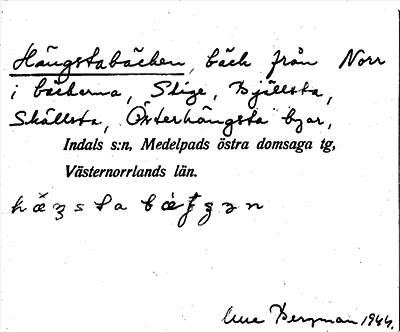 Hängstabäcken, bäck från Norr
i bäckerna, Stige, Bjällsta,
Skällsta, Österhängsta byar,
Indals s:n, Medelpads östra domsaga tg,
Västernorrlands län.
Bergman 1944.